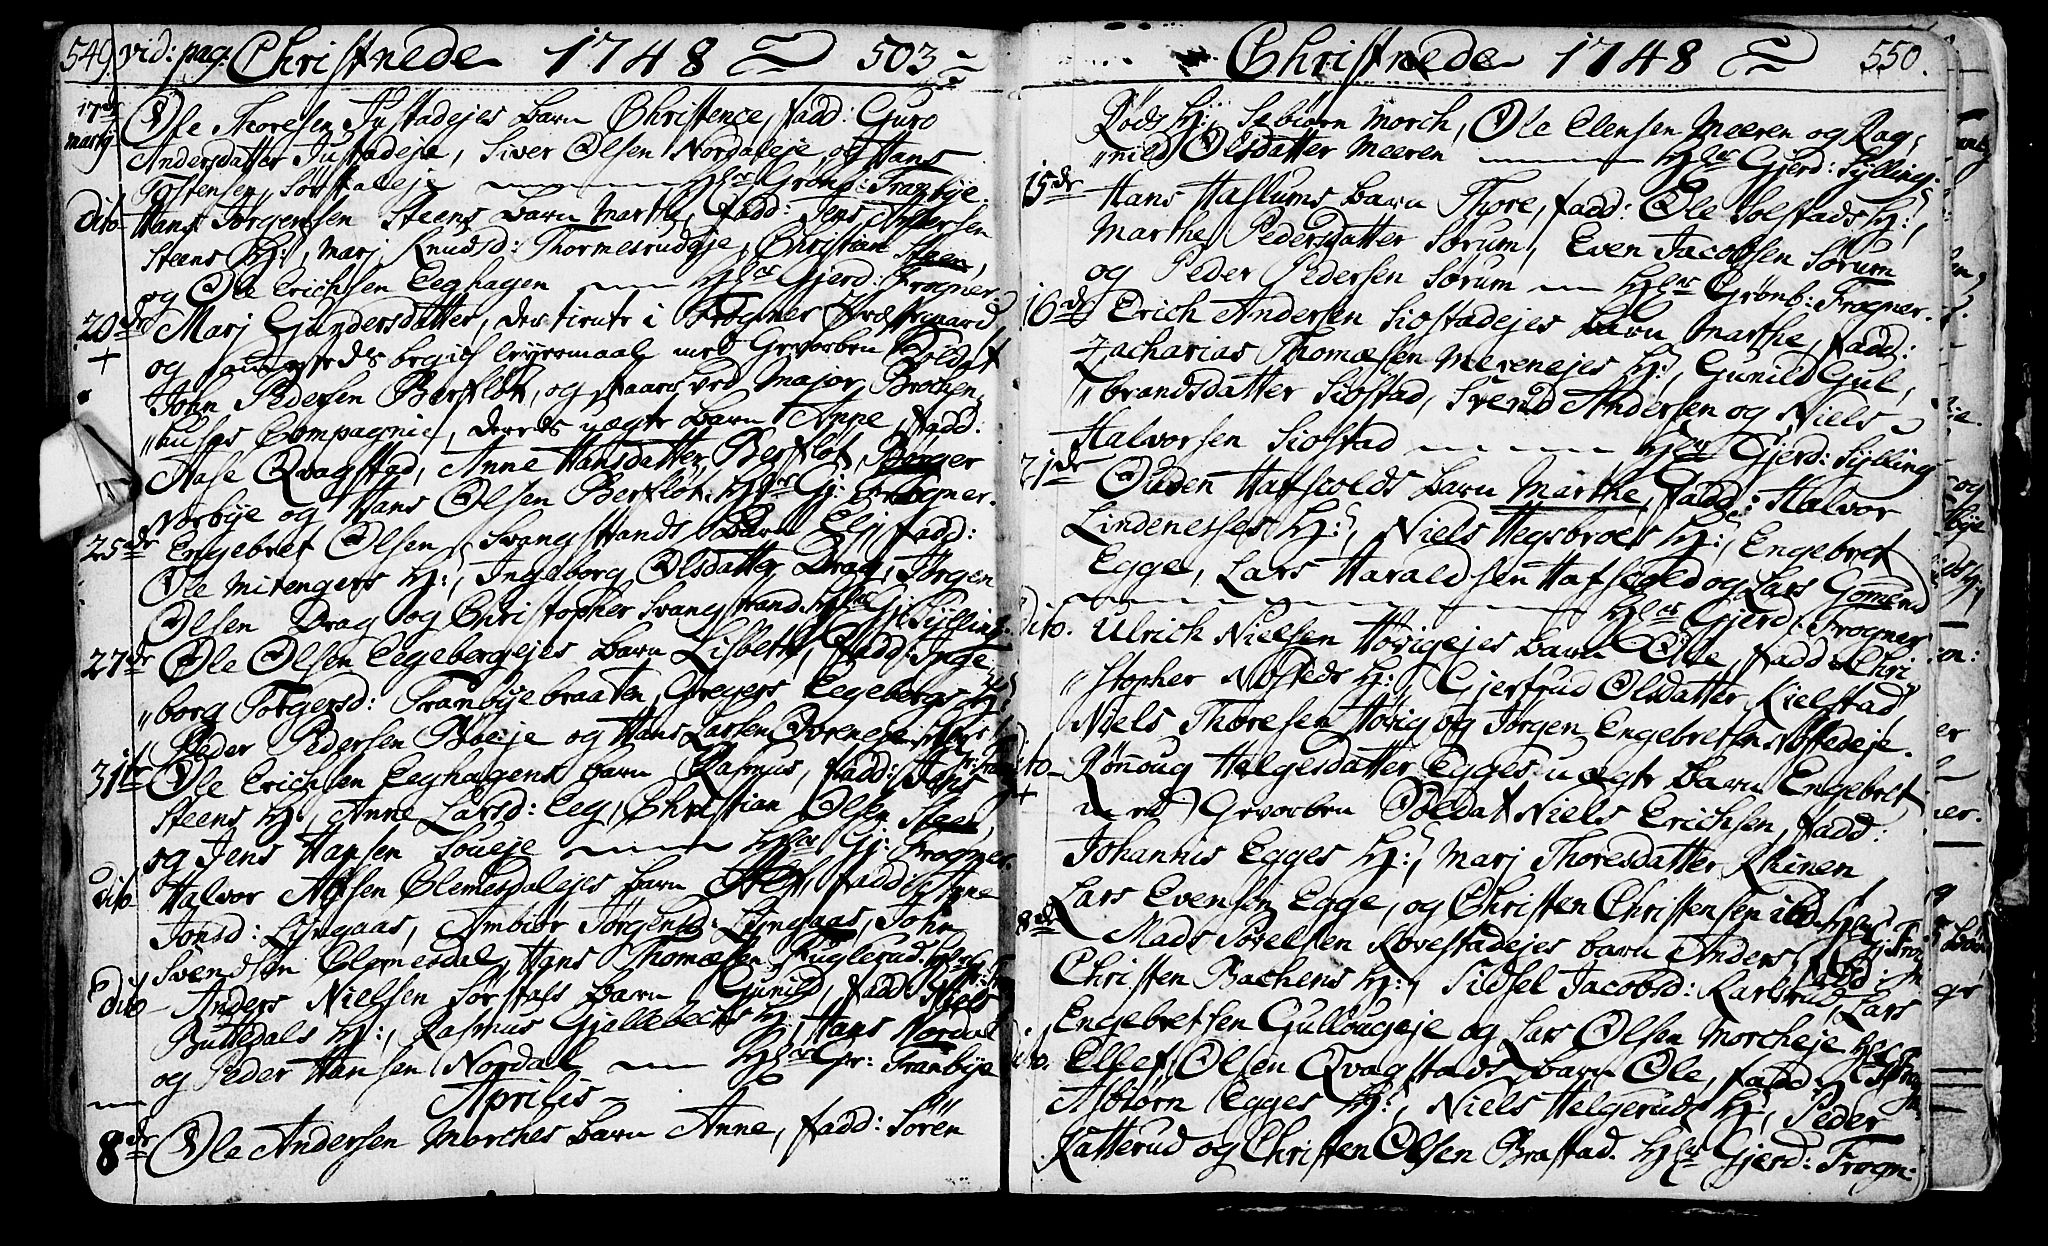 549. vid: pag: Christnede 1748 503
17de Martij Ole Thoresen Justadejes barn Christence, fadd: Guro
Andersdatter Justadeje, Siver Olsen Nordaleje og Hans
Tostensen Sørstaleje Hr Grønb: Franbye.
dito Hans Jørgensen Steens barn Marthe, fadd: Jens Andersen
Steens H:, Marj Knudsd: Thormesrudeje, Christian Steen,
og Ole Erichsen Eeghagen Hr Gjerd: Frogner.
20de Marj Gundersdatter, destinte i Frogner Præstegaard
og begick leyermaal med Gevorben Soldat
John Pedersen Berfløt, og staars ved Major Brochen,
huses Compagnie, deres uægte barn Anne, fadd:
Aase Qvagstad, Anne Hansdatter Berfløt, Børger
Norbye og Hans Olsen Berfløt. Hr Gj: Frogner.
25de Engebret Olsen Svangstrands barn Elj, fadd:
Ole Mitengens H:, Ingeborg Olsdatter Drag, Jørgen
Olsen Drag og Christopher Svangstrand. Hr Gj: Sylling.
27de Ole Olsen Eegebergejes barn Lisbeth, fadd: Inge,
borg Torgersd: Franbyebraaten, Gregers Eegebergs H:
Peder Pedersen Bøeje og Hans Larsen
31te Ole Erichsen Eeghagens barn Rasmus, fadd: Jens
Steens H:, Anne Larsd: Eeg, Christian Olsen Steen,
og Jens Hansen Søueje Hr Gj: Frogner.
dito Halvor Alfsen Clemesdalejes barn fadd: Anne
Jonsd: Lyngaas, Ambiør Jørgensd: Lyngaas, John
Svendsen Clemesdal, Hans Thomæsen Kuglerud.
dito Anders Nielsen Sørstals barn Gunild, fadd: Niels
Buttedals H:, Rasmus Gjellebechs H:, Hans Nordal
og Peder Hansen Nordal Hr Gr: Franbye
Aprilis
8de Ole Andersen Morches barn Anne, fadd: Søren
Christnede 1748 550.
Røds H:, Sebiørn Morch, Ole Elensen Meeren og Rag,
nild Olsdatter Meeren Hr Gjerd: Sylling.
15de Hans Haslums barn Thore, fadd: Ole Solstads H:,
Marthe Pedersdatter Sørum, Even Jacobsen Sørum
og Peder Pedersen Sørum Hr Grønb: Frogner.
16de Erich Andersen Siostadejes barn Marthe, fadd:
Zacharias Thomæsen Merenejes H:, Gunild Gul,
brandsdatter Siostad, Svend Andersen og Niels
Halvorsen Siostad Hr Gjerd: Sylling
21de Ouden Hafsvolds barn Marthe, fadd: Halvor
Lindenesses H:, Niels Hegsbroes H:, Engebret
Egge, Lars Haraldsen Hafsvold og Lars
Hr Gjerd: Frogner
dito. Ulrich Nielsen Høvigejes barn Ole, fadd: Chri
stopher Nøsteds H:, Gjertrud Olsdatter Kielstad,
Niels Thoresen Høvig og Jørgen Engebretsen Nøstedeje.
dito Rønoug Helgesdatter Egges uægte barn Engebret
med Gevorben Soldat Niels Erichsen, fadd:
Johannis Egges H:, Marj Thoresdatter Rhinen
Lars Evensen Egge, og Christen Christensen ibid
8de Mads Sørelsen Rovestadejes barn Anders, fadd:
Christen Bachens H:, Sidsel Jacobsd: Karlsrud, Lars
Engebretsen Gullougeje og Lars Olsen Morcheje
dito. Ellef Olsen Qvagstads barn Ole, fadd:
Asbiørn Egges H:, Niels Helgeruds H:, Peder
Katterud og Christen Olsen Brastad. Hr Gjerd: Frogn: